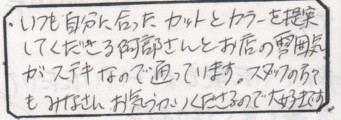 ・いつも自分に合ったカットとカラーを提案
してくださる阿部さんとお店の雰囲気
がステキなので通っています。スタッフの方々
もみなさんお気づかいくださるので大好きです